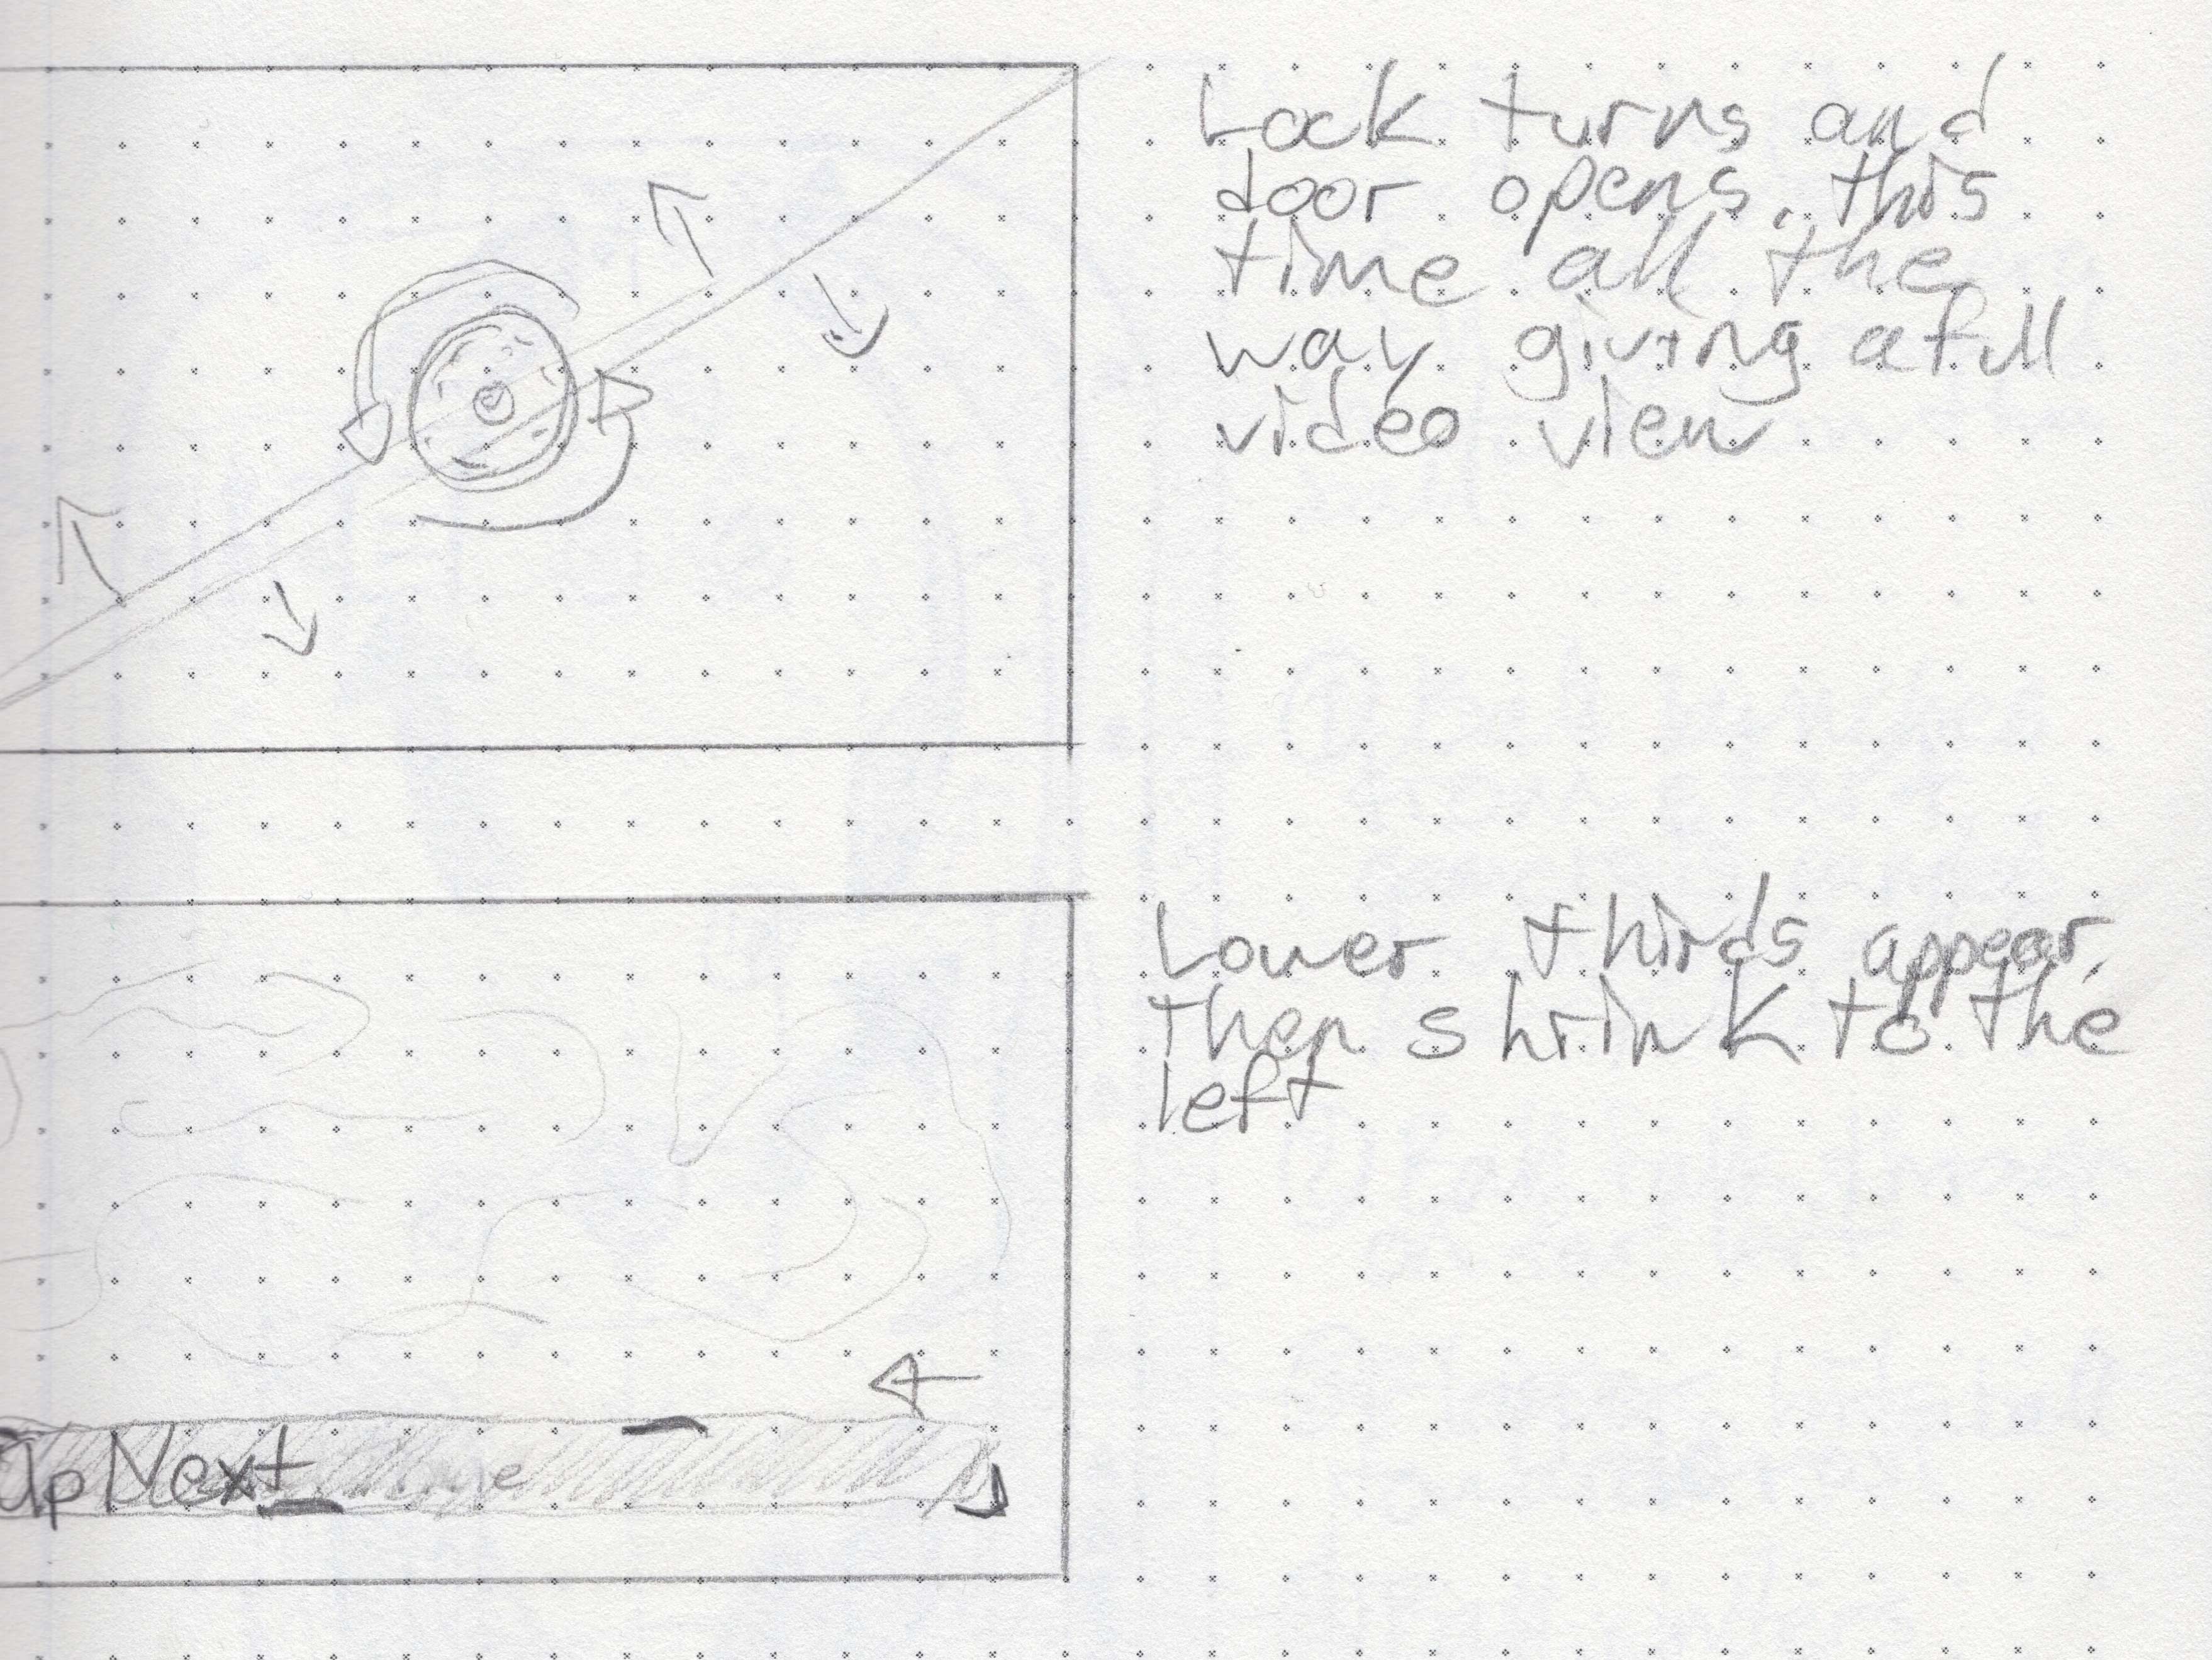 Lock turns and
door opens, this
time all the
way giving a full
video view
Lower thirds appear,
then shrink to the
left
Up Next